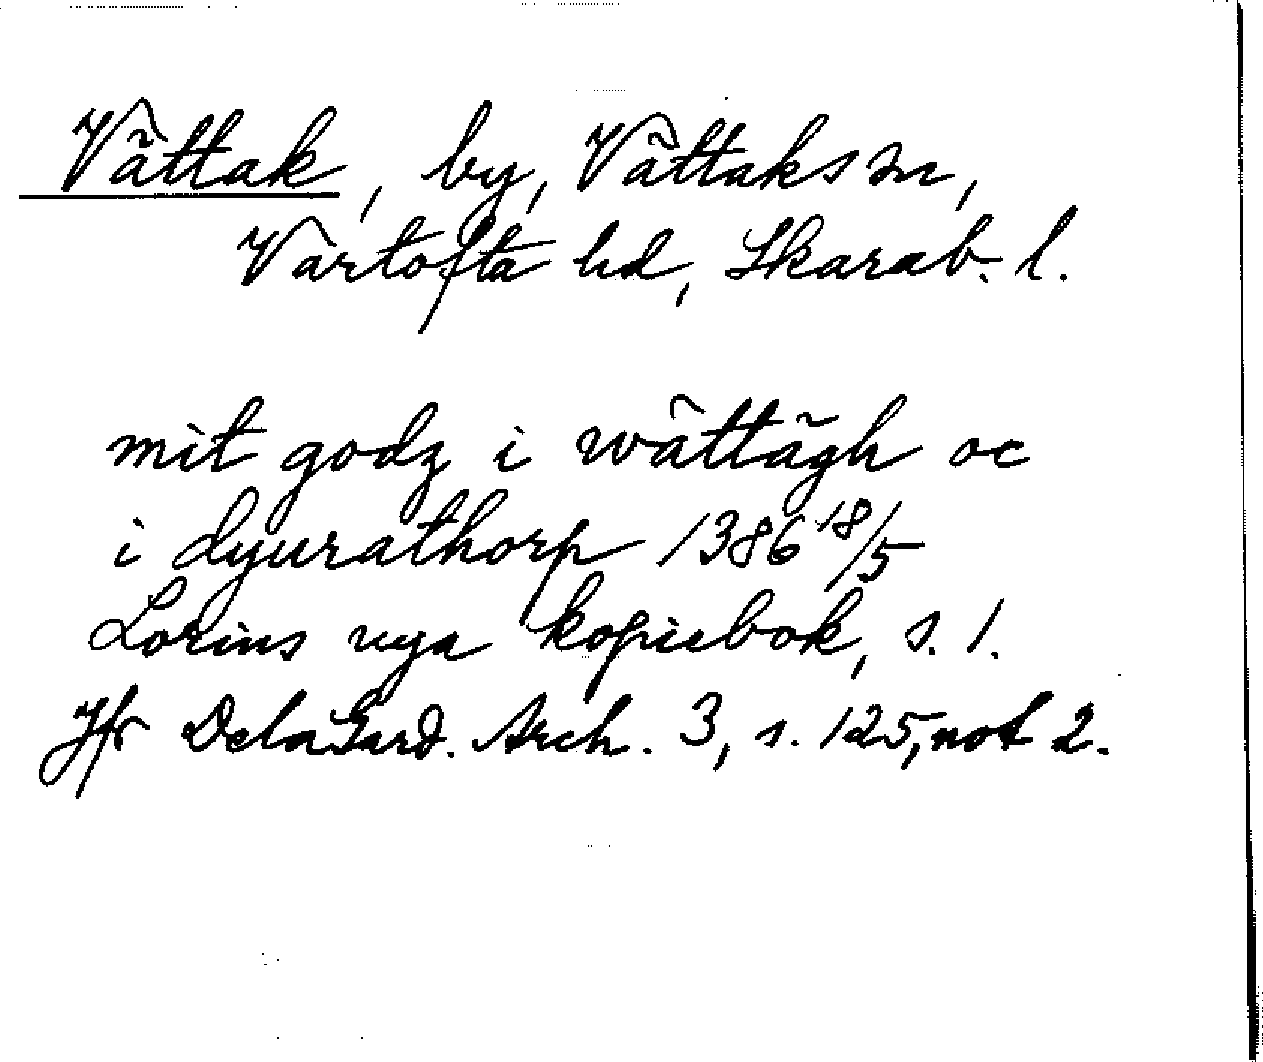 Vättak, by, Vättaks sn,
Vartofta hd, Skarab. l.
mit godz i wättägh oc
i dyurathorp 1386 18/5
Lorins nya kopiebok, s. 1.
Jfr DelaGard. Arch. 3, s. 125, not 2.